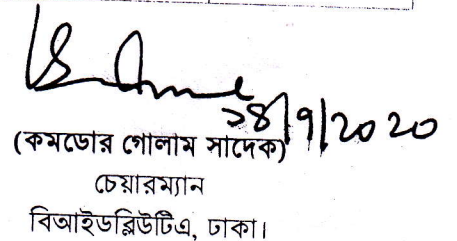 ২৪/৭/২০২০
(কমডোর গোলাম সাদেক)
চেয়ারম্যান
বিআইডব্লিউটিএ, ঢাকা।